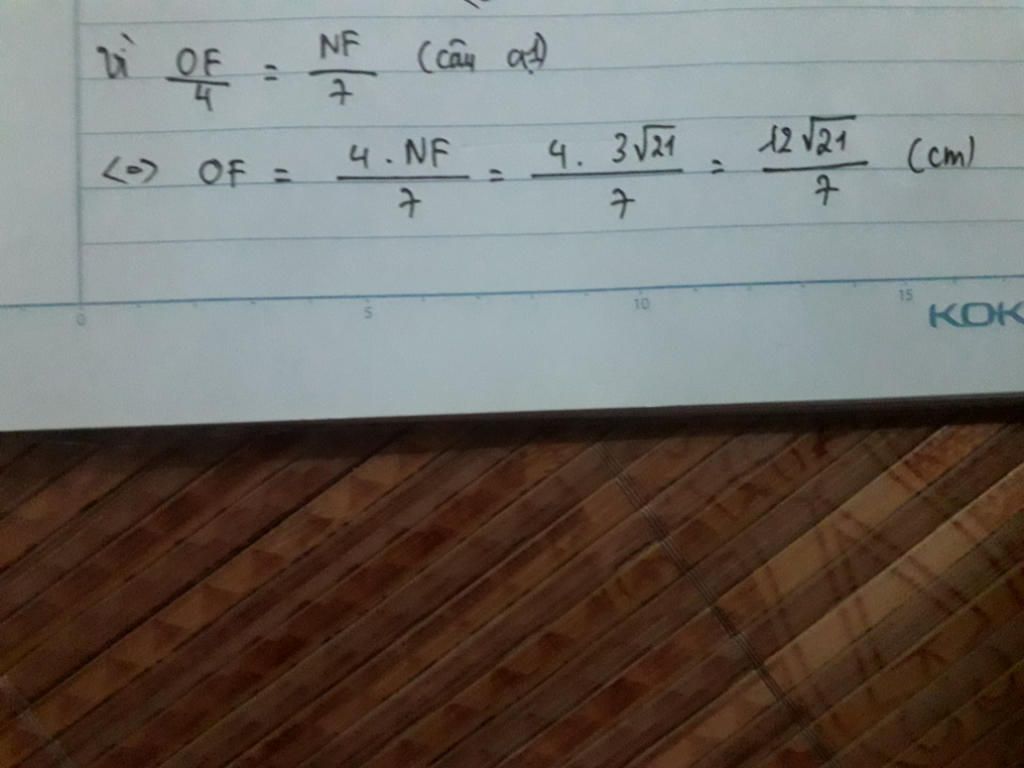 Vì OF/4 = NF/7 (câu a)
<=> OF = 4 . NF/7 = 4 . 3√21/7 = 12√21/7 (cm)
0 5 10 15 KOK